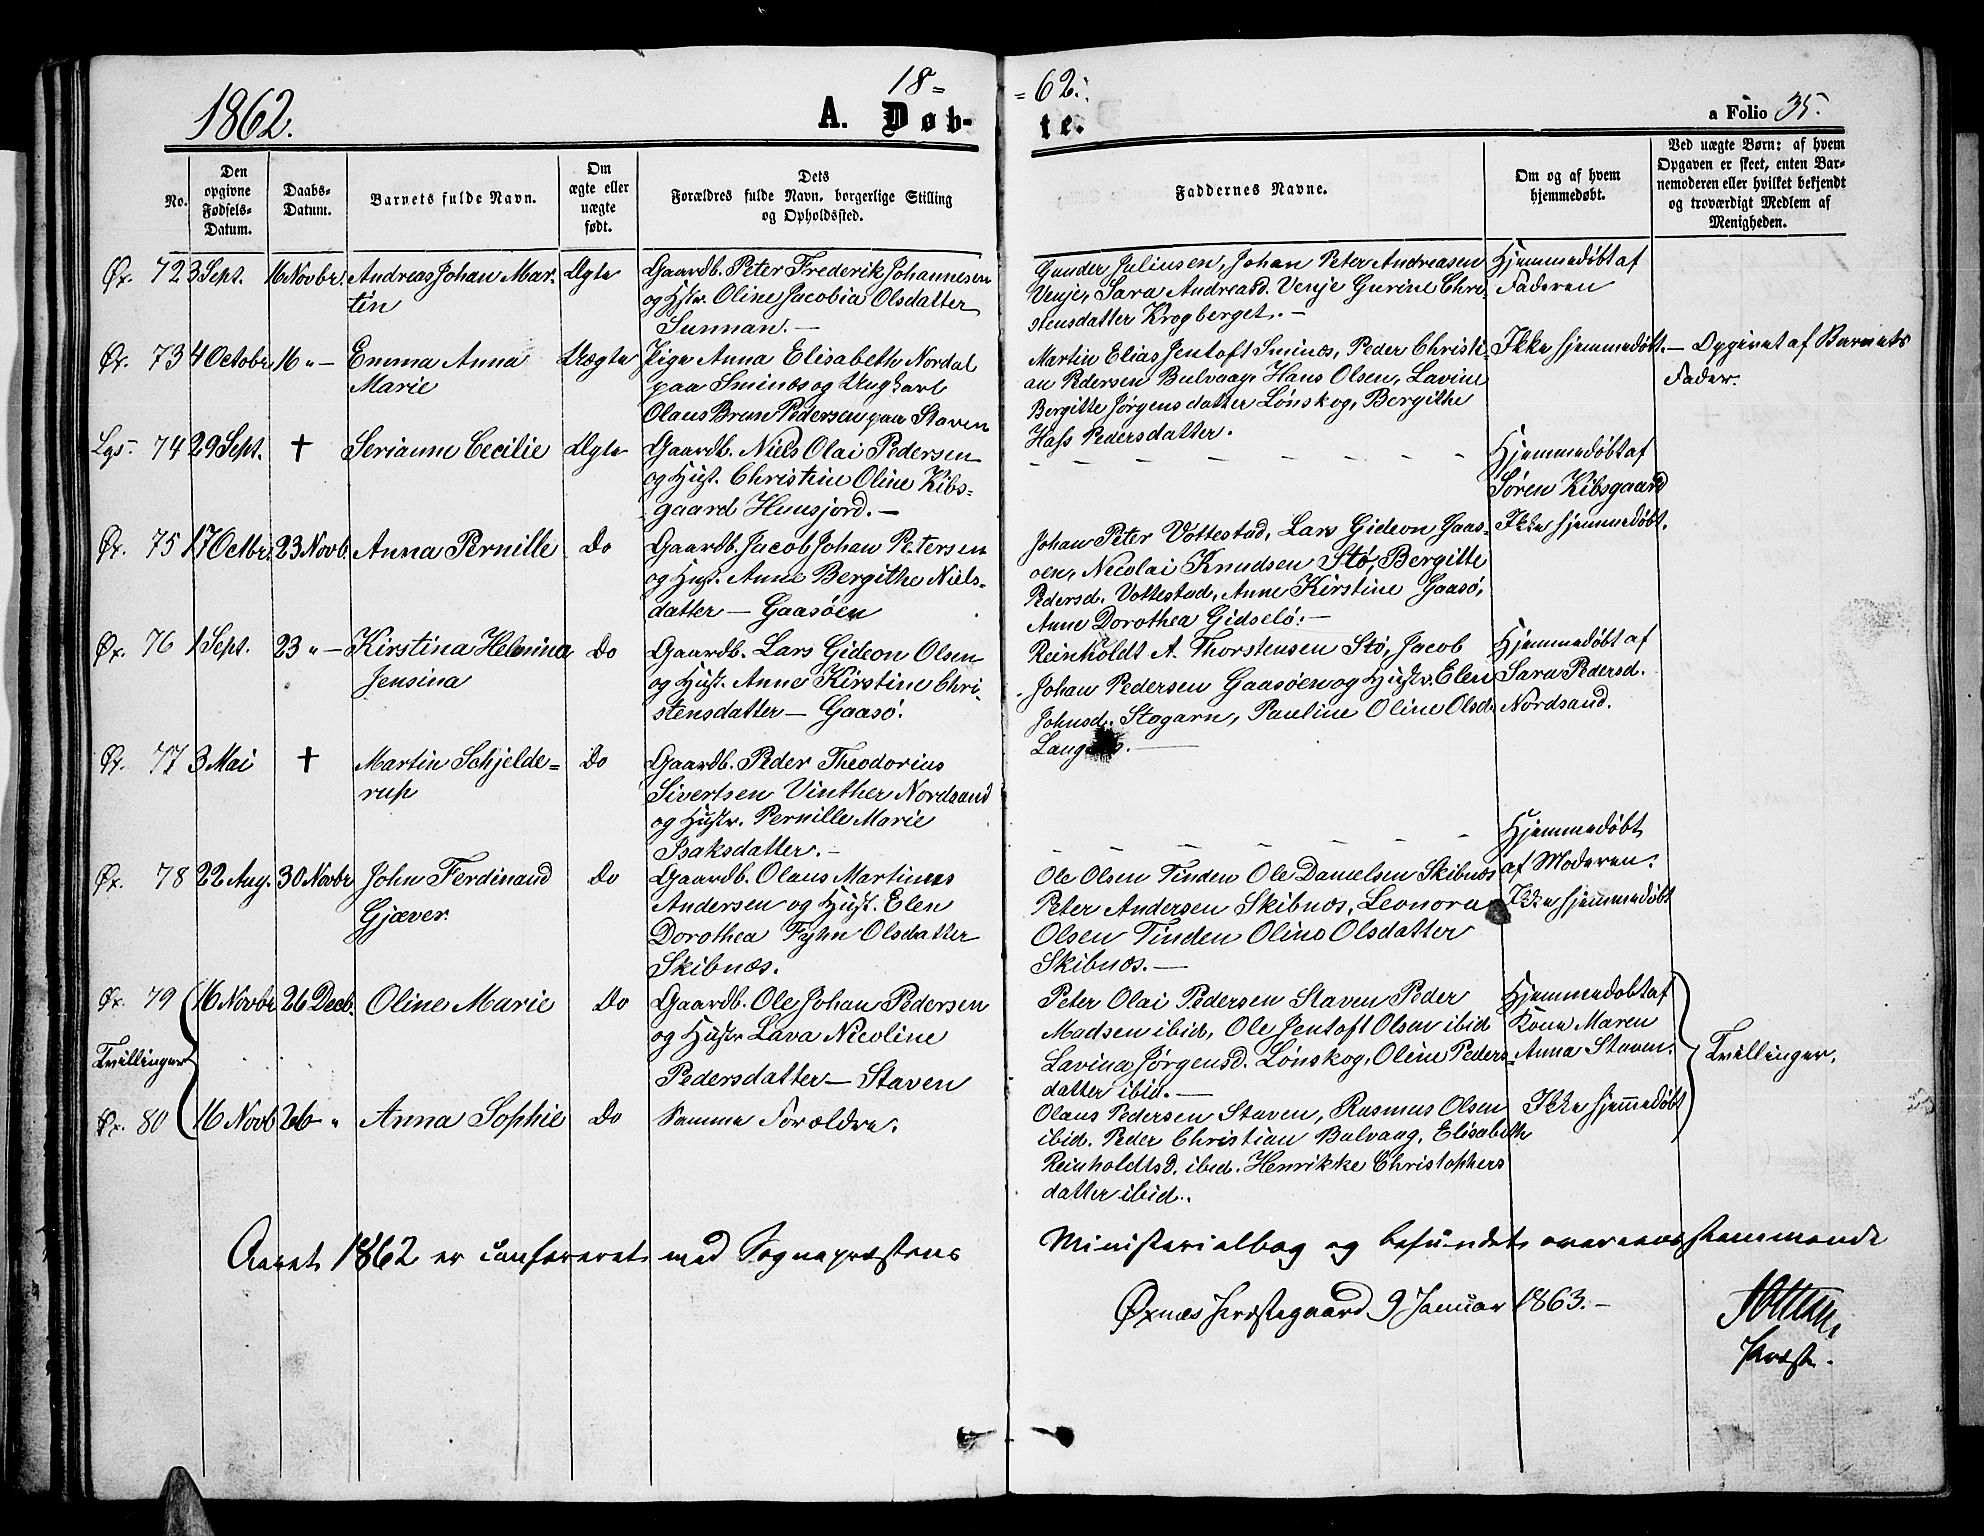 1862.
18=
=62.
A. Døb-
te.
a Folio 35.
No.
Den opgivne Fødsels-Datum.
Daabs-Datum.
Barnets fulde Navn.
Om ægte eller uægte født.
Dets Forældres fulde Navn, borgerlige Stilling og Opholdssted.
Faddernes Navne.
Om og af hvem hjemmedøbt.
Ved uægte Børn: af hvem Opgaven er skeet, enten Barnemoderen eller hvilket bekjendt og troværdigt Medlem af Menigheden.
Øx. 72 3 Sept. 16 Novbr. Andreas Johan Mar-
tin
Ægte
Gaardb. Peter Frederik Johannesen
og Hstr. Oline Jacobia Olsdatter
Sunnan. —
Gunder Juliusen, Johan Peter Andreasen
Venje, Sara Andreasd. Venje Gurine Chri-
stensdatter Krogberget. —
Hjemmedøbt af
Faderen
Øx. 73 4 Octobr. 16 „ — Emma Anna
Marie
Uægte
Pige Anna Elisabeth Nordal
paa Sminæs og Ungkarl
Olaus Brun Pedersen paa Staven
Martin Elias Jentoft Sminæs, Peder Christi-
an Pedersen Bulvaag, Hans Olsen, Lavine
Bergitte Jørgensdatter Lønskog, Bergithe
Hass Pedersdatter.
Ikke hjemmedøbt.
— Opgivet af Barnets
Fader.
Lgs. 74 29 Sept. † Serianne Cecilie Ægte
Gaardb. Niels Olai Pedersen
og Hust. Christine Oline Kibs-
gaard Hunsjord. —
Hjemmedøbt af
Søren Kibsgaard
Øx. 75 17 Octbr. 23 Novb. Anna Pernille Do
Gaardb. Jacob Johan Petersen
og Hust. Anne Bergithe Niels-
datter — Gaasøen
Johan Peter Vottestad, Lars Gideon Gaas-
øen, Nicolai Knudsen Stø, Bergitte
Pedersd. Vottestad, Anne Kirstine Gaasø,
Anne Dorothea Gidselø. —
Ikke hjemmedøbt.
Øx. 76 1 Sept. 23 „ — Kirstina Helmina
Jensina
Do
Gaardb. Lars Gideon Olsen
og Hust. Anne Kirstine Chri-
stensdatter — Gaasø.
Reinholdt A. Thorstensen Stø, Jacob
Johan Pedersen Gaasøen og Hustr. Elen
Johnsd. Stogarn, Pauline Oline Olsd.
Hjemmedøbt af
Sara Pedersd.
Nordsand.
Øx. 77 3 Mai † Martin Schjelde-
rup
Do
Gaardb. Peder Theodorius
Sivertsen Vinther Nordsand
og Hustr. Pernille Marie
Isaksdatter. —
Hjemmedøbt
af Moderen.
Øx. 78 22 Aug. 30 Novbr John Ferdinand
Gjæver.
Do
Gaardb. Olaus Martinus
Andersen og Hust. Elen
Dorothea Fyhn Olsdatter
Skibnæs.
Ole Olsen Tinden Ole Danielsen Skibnæs
Peter Andersen Skibnæs, Leonora
Olsen Tinden Oline Olsdatter
Skibnæs. —
Ikke hjemmedøbt
Øx. 79 16 Novbr 26 Decb. Oline Marie Do
Tvillinger
Gaardb. Ole Johan Pedersen
og Hustr Lava Nicoline
Pedersdatter — Staven
Peter Olai Pedersen Staven Peder
Madsen ibid, Ole Jentoft Olsen ibid
Lavina Jørgensd. Lønskog, Oline Peders-
datter ibid. —
Hjemmedøbt af
Kone Maren
Anna Staven.
Tvillinger.
Øx. 80 16 Novb 26 „ Anna Sophie Do
Samme Forældre.
Olaus Pedersen Staven, Rasmus Olsen
ibid. Peder Christian Bulvaag, Elisabeth
Reinholdtsd. ibid. Henrikke Christophers
datter ibid.
Ikke hjemmedøbt
Aaret 1862 er confereret med Sognepræstens Ministerialbog og befundet overensstemmende
Øxnæs Præstegaard 9 Januar 1863. —
Præst.